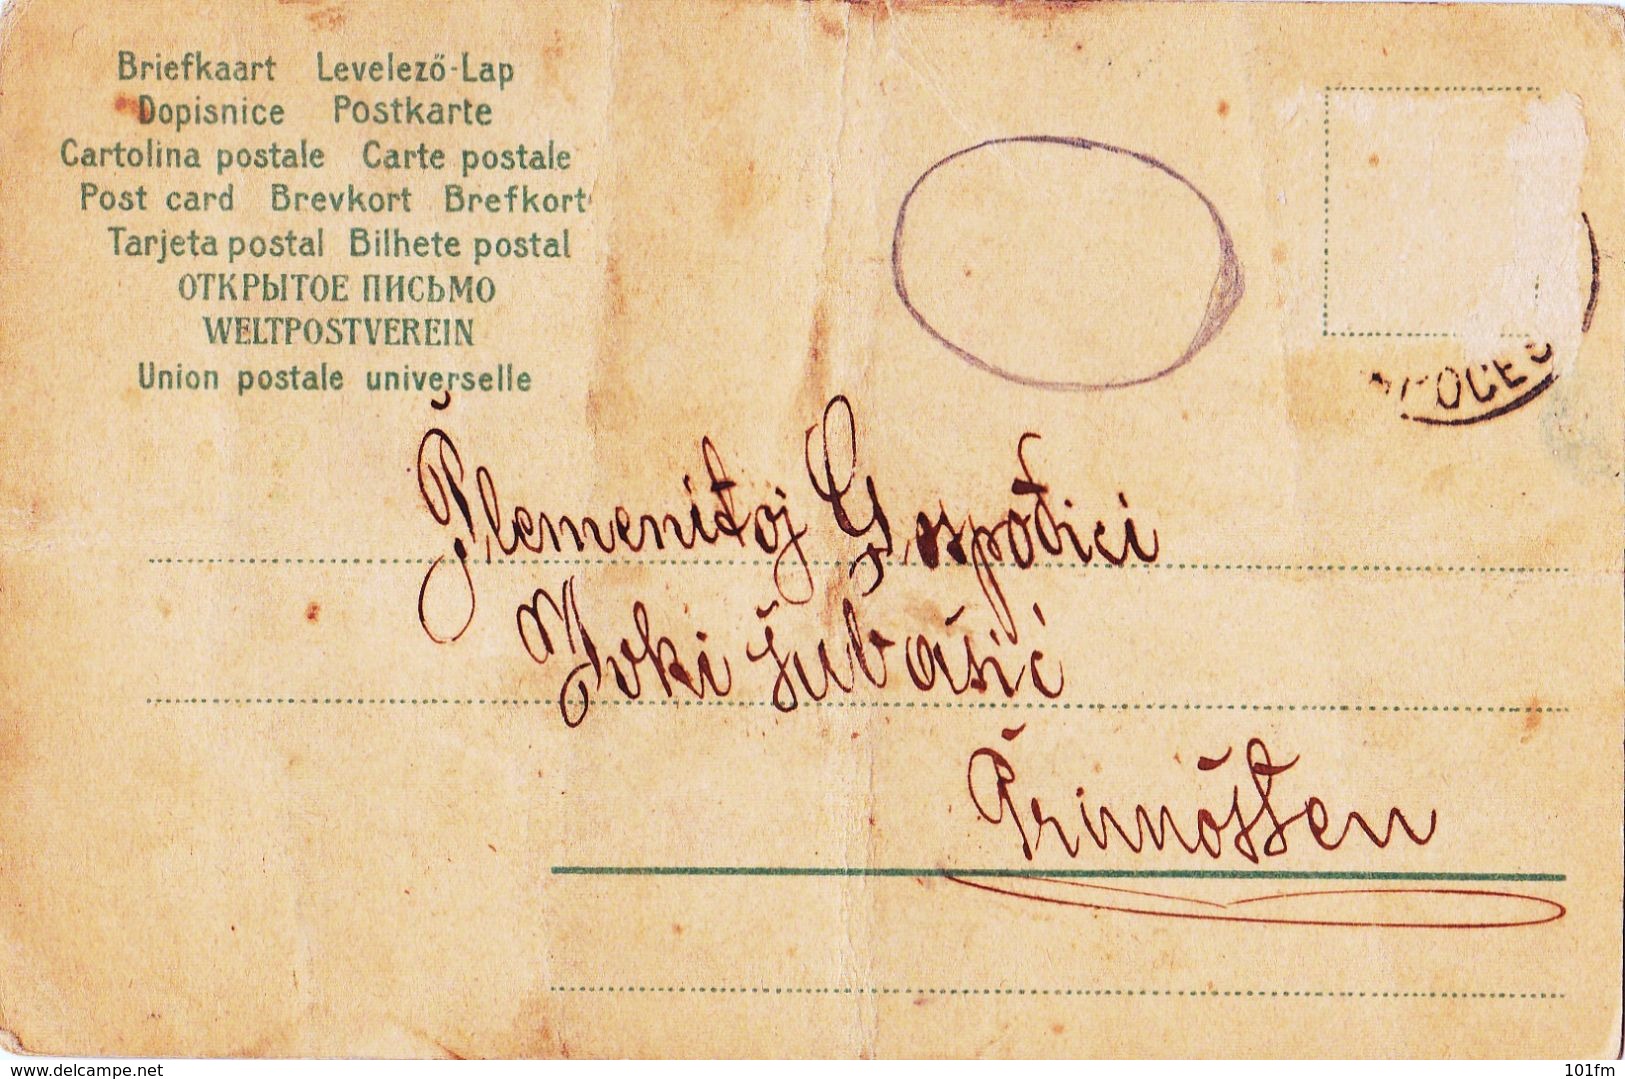 Briefkaart Levelező-Lap
Dopisnice Postkarte
Cartolina postale Carte postale
Post card Brevkort Brefkort
Tarjeta postal Bilhete postal
ОТКРЫТОЕ ПИСЬМО
WELTPOSTVEREIN
Union postale universelle
Plemenitoj Gospodici
Ivki Jubašić
Primošten
delcampe.net
101fm